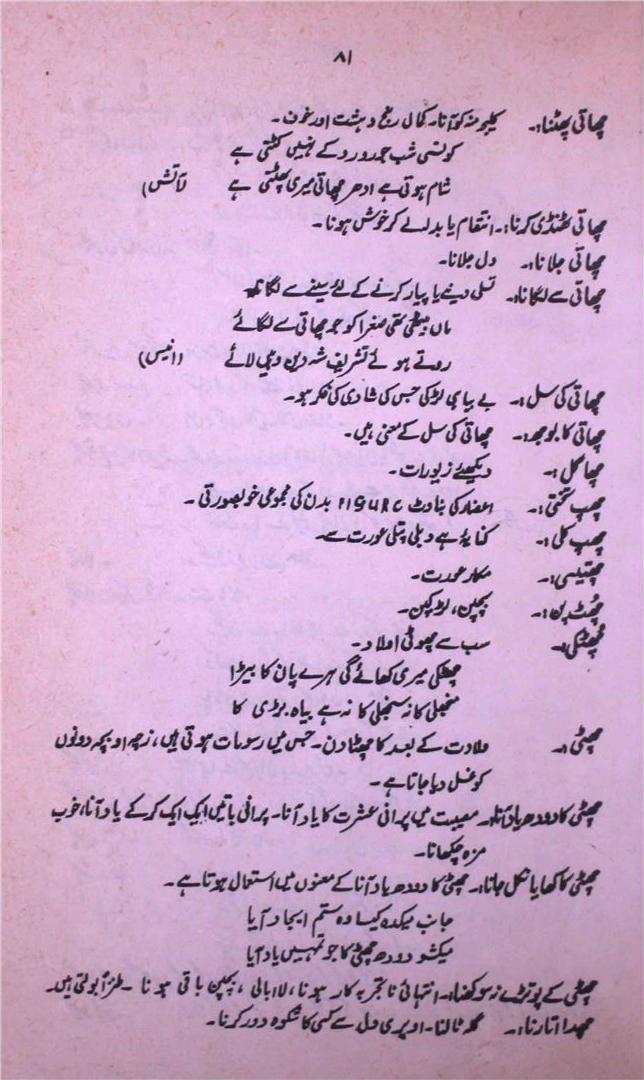 ۸۱
چھاتی پھٹنا:۔ کلیجہ منہ کو آنا۔ کمال رنج و دہشت اور خوف۔
کونسی شب جو رو رو کے نہیں کٹتی ہے
شام ہوتی ہے ادھر چھاتی میری پھٹتی ہے (آتش)
چھاتی ٹھنڈی کرنا:۔ انتقام یا بدلہ لے کر خوش ہونا۔
چھاتی جلانا:۔ دل جلانا۔
چھاتی سے لگانا:۔ تسلی دینے یا پیار کرنے کے لئے سینے سے لگانا۔
ماں بیٹھی تھی صغرا کو جو چھاتی سے لگائے
روتے ہوئے تشریف شہ دین وہی لائے (انیس)
چھاتی کی سل:۔ بے بیاہی لڑکی جس کی شادی کی فکر ہو۔
چھاتی کا بوجھ:۔ چھاتی کی سل کے معنی ہیں۔
چھاگل:۔ دیکھئے زیورات۔
چھب تختی:۔ اعضار کی بناوٹ FIGURE بدن کی مجموعی خوبصورتی۔
چھپ کلی:۔ کنایۃً ہے دبلی پتلی عورت سے۔
چھتیسی:۔ مکار عورت۔
چھٹ پن:۔ بچپن، لڑکپن۔
چھٹکی:۔ سب سے چھوٹی اولاد۔
چھٹکی میری کھائے گی ہرے پان کا بیڑا
منجھلی کا نہ سنجھلی کا نہ ہے بیاہ بڑی کا
چھٹی:۔ ولادت کے بعد کا چھٹا دن۔ جس میں رسومات ہوتی ہیں، زچہ او بچہ دونوں
کو غسل دیا جاتا ہے۔
چھٹی کا دودھ یاد آنا:۔ مصیبت میں پرانی عشرت کا یاد آنا۔ پرانی باتیں ایک ایک کر کے یاد آنا، خوب
مزہ چکھانا۔
چھٹی کا کھایا نکل جانا:۔ چھٹی کا دودھ یاد آنا کے معنوں میں استعمال ہوتا ہے۔
جانب میکدہ کیسا وہ ستم ایجاد آیا
میکشو دودھ چھٹی کا جو تمہیں یاد آیا
چھٹی کے پوتڑے نہ سوکھنا:۔ انتہائی ناتجربہ کار ہونا، لاابالی، بچپن باقی ہونا۔ طنزاً بولتی ہیں۔
چھدا اتارنا:۔ گلہ ٹالنا۔ اوپری دل سے کسی کا شکوہ دور کرنا۔